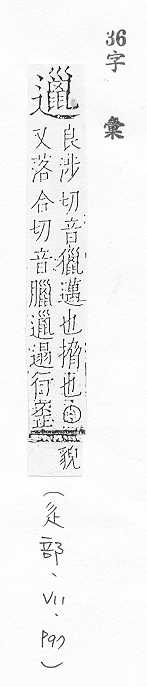 36
字彙
邋
良涉切音獵邁也搚也
又落合切音臘邋遢行歪
貌
(辵部、VII、P97)